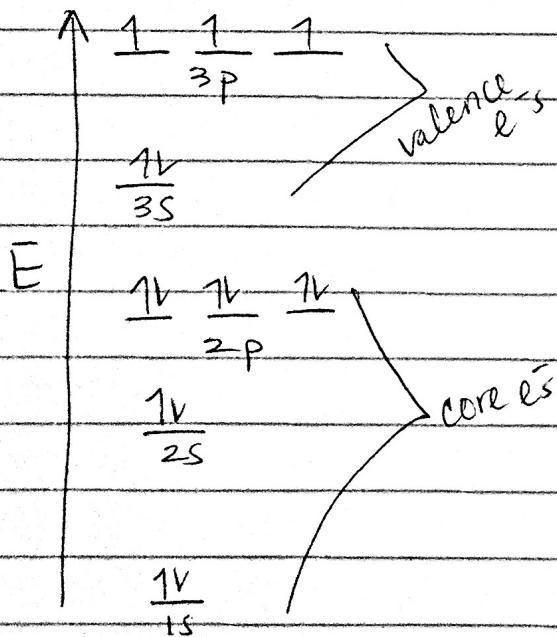 1 1 1
3p
valence
e⁻s
1↓
3s
E
1↓ 1↓ 1↓
2p
core e⁻s
1↓
2s
1↓
1s